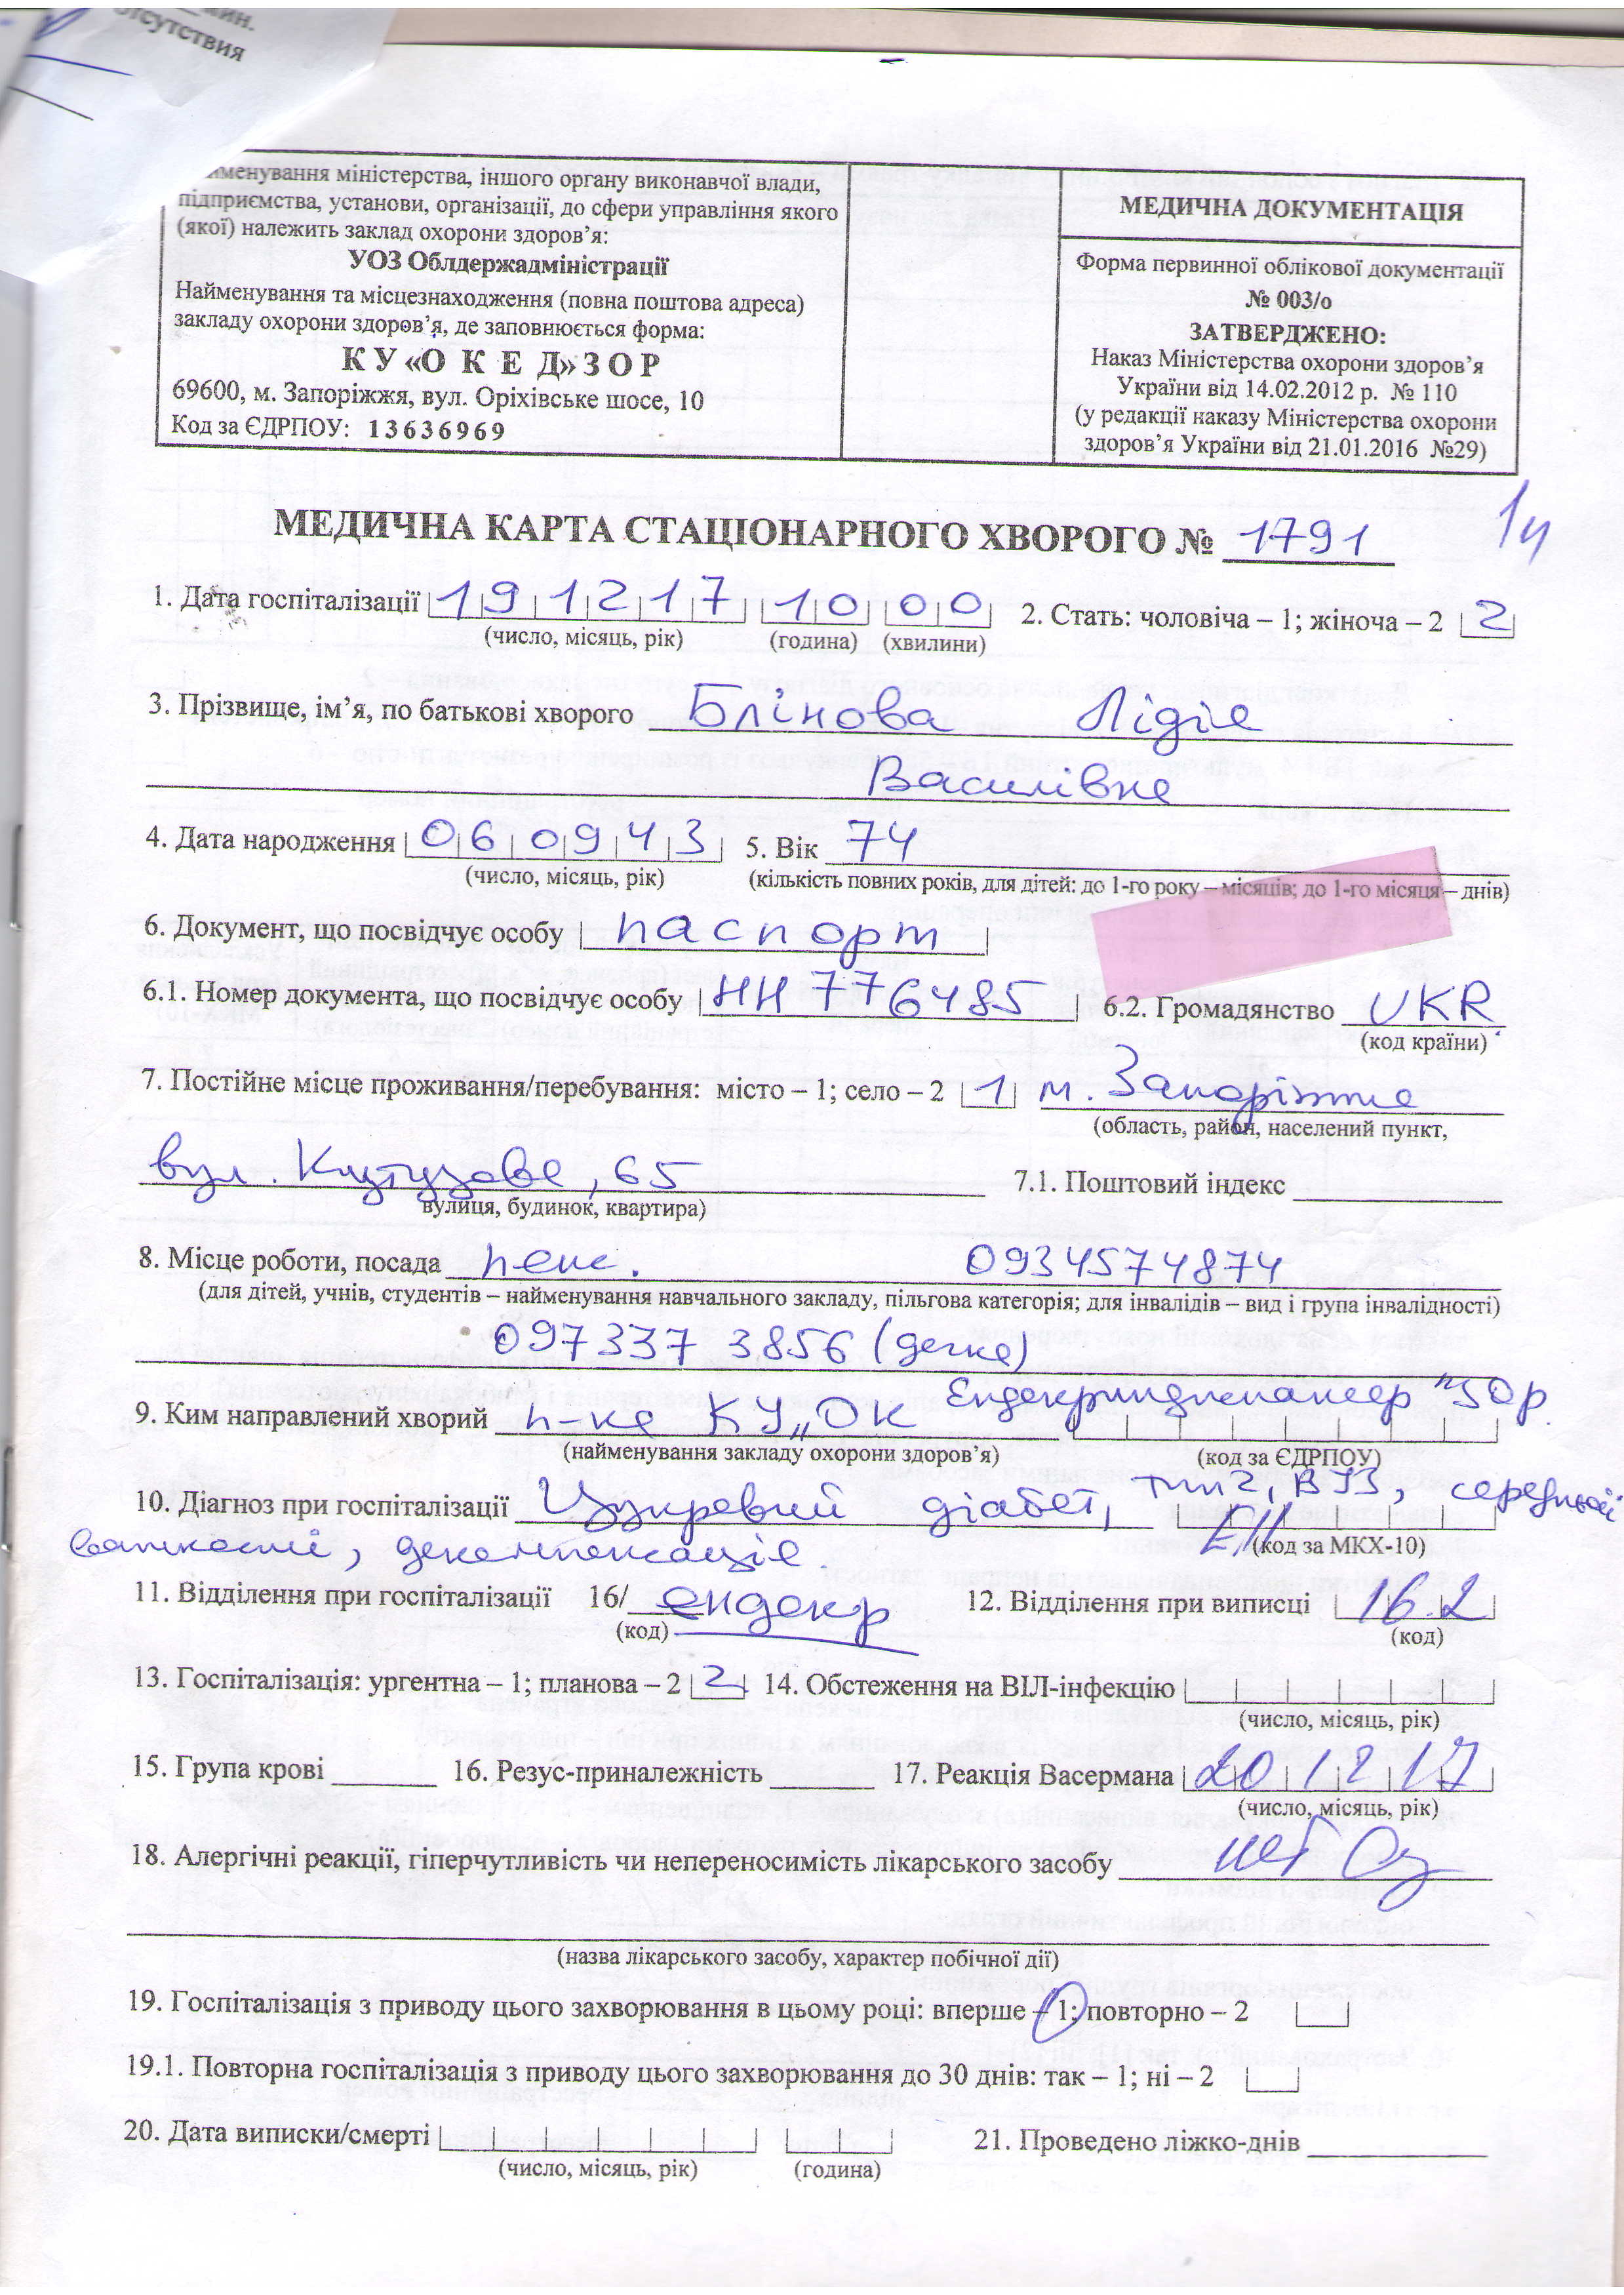 мин.
отсутствия
йменування міністерства, іншого органу виконавчої влади,
підприємства, установи, організації, до сфери управління якого
(якої) належить заклад охорони здоров’я:
УОЗ Облдержадміністрації
Найменування та місцезнаходження (повна поштова адреса)
закладу охорони здоров’я, де заповнюється форма:
К У «О К Е Д» З О Р
69600, м. Запоріжжя, вул. Оріхівське шосе, 10
Код за ЄДРПОУ: 13636969
МЕДИЧНА ДОКУМЕНТАЦІЯ
Форма первинної облікової документації
№ 003/о
ЗАТВЕРДЖЕНО:
Наказ Міністерства охорони здоров’я
України від 14.02.2012 р. № 110
(у редакції наказу Міністерства охорони
здоров’я України від 21.01.2016 №29)
МЕДИЧНА КАРТА СТАЦІОНАРНОГО ХВОРОГО № 1791
1. Дата госпіталізації 19 12 17 10 00 2. Стать: чоловіча – 1; жіноча – 2 2
(число, місяць, рік) (година) (хвилини)
3. Прізвище, ім’я, по батькові хворого Блінова Лідія
Василівна
4. Дата народження 06 09 43 5. Вік 74
(число, місяць, рік) (кількість повних років, для дітей: до 1-го року – місяців; до 1-го місяця – днів)
6. Документ, що посвідчує особу паспорт
6.1. Номер документа, що посвідчує особу НН 776485 6.2. Громадянство UKR
(код країни)
7. Постійне місце проживання/перебування: місто – 1; село – 2 1 м. Запоріжжя
(область, район, населений пункт,
вул. Кутузова, 65 7.1. Поштовий індекс
вулиця, будинок, квартира)
8. Місце роботи, посада пенс. 0934574874
(для дітей, учнів, студентів – найменування навчального закладу, пільгова категорія; для інвалідів – вид і група інвалідності)
097337 3856 (дочка)
9. Ким направлений хворий п-ка КУ „ОК Ендокриндиспансер" ЗОР
(найменування закладу охорони здоров’я) (код за ЄДРПОУ)
10. Діагноз при госпіталізації Цукровий діабет, тип 2, ВУЗ, середньої
важкості, декомпенсація. E11 (код за МКХ-10)
11. Відділення при госпіталізації 16/ ендокр 12. Відділення при виписці 16.2
(код) (код)
13. Госпіталізація: ургентна – 1; планова – 2 2 14. Обстеження на ВІЛ-інфекцію
(число, місяць, рік)
15. Група крові 16. Резус-приналежність 17. Реакція Васермана 20 12 17
(число, місяць, рік)
18. Алергічні реакції, гіперчутливість чи непереносимість лікарського засобу нет
(назва лікарського засобу, характер побічної дії)
19. Госпіталізація з приводу цього захворювання в цьому році: вперше – 1; повторно – 2
19.1. Повторна госпіталізація з приводу цього захворювання до 30 днів: так – 1; ні – 2
20. Дата виписки/смерті 21. Проведено ліжко-днів
(число, місяць, рік) (година)